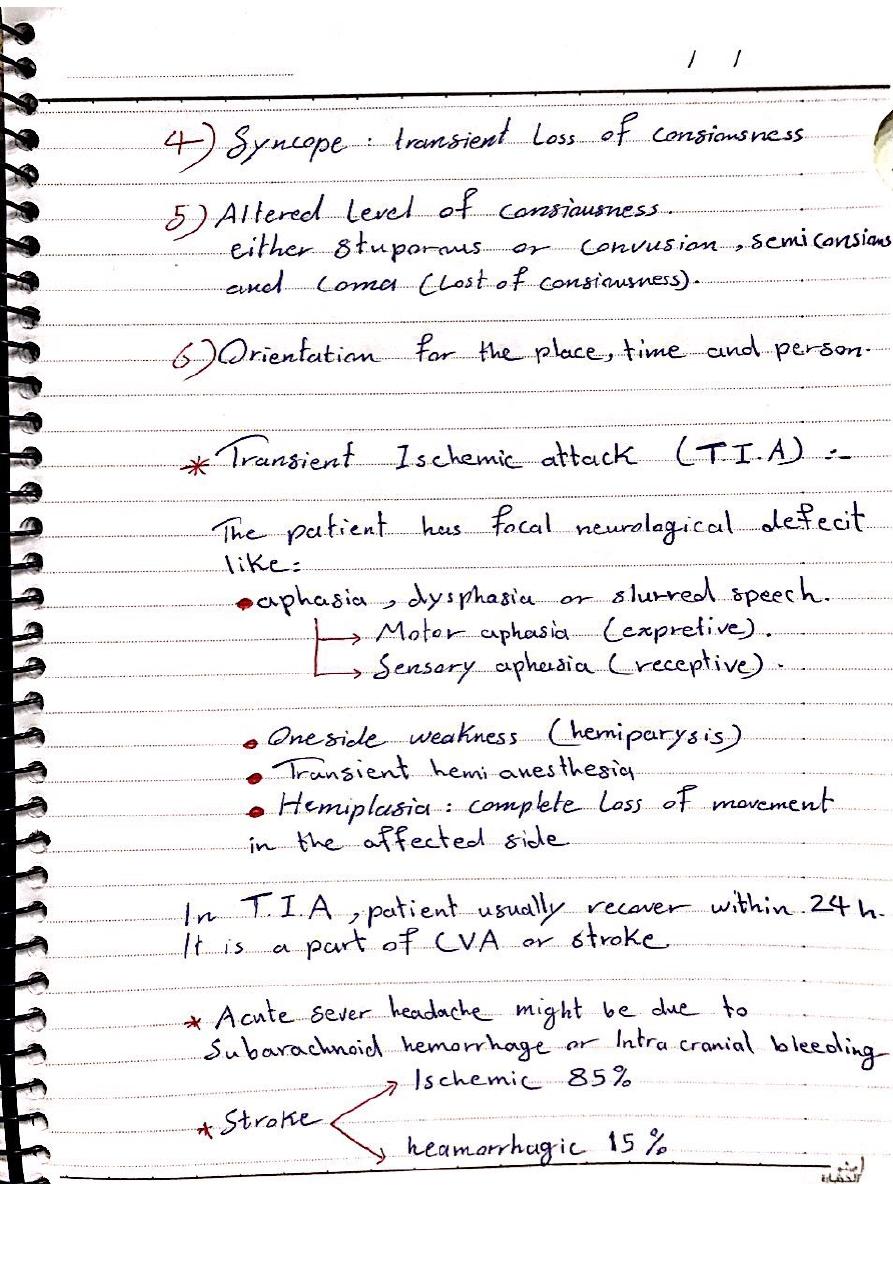 / /
4) Syncope : transient Loss of consiousness
5) Altered level of consiousness.
either stuporous or convusion, semiconsious
and coma (Lost of consiousness).
6) Orientation for the place, time and person.
* Transient Ischemic attack (T.I.A) :-
The patient has focal neurological defecit
like:
• aphasia, dysphasia or slurred speech.
→ Motor aphasia (expretive).
→ Sensory aphasia (receptive).
• One side weakness (hemiparysis)
• Transient hemi anesthesia
• Hemiplasia : complete Loss of movement
in the affected side
In T.I.A, patient usually recover within 24 h.
It is a part of CVA or stroke
* Acute sever headache might be due to
Subarachnoid hemorrhage or Intra cranial bleeding
Ischemic 85%
* Stroke
heamorrhagic 15%